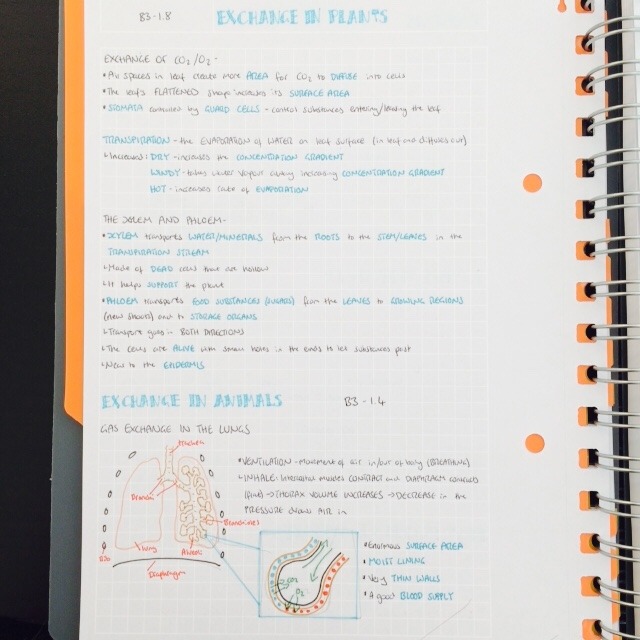 B3-1.8 EXCHANGE IN PLANTS
EXCHANGE OF CO2/O2-
•Air spaces in leaf create more AREA for CO2 to DIFFUSE into cells
•The leaf's FLATTENED shape increases its SURFACE AREA
•STOMATA controlled by GUARD CELLS - control substances entering/leaving the leaf
TRANSPIRATION - the EVAPORATION of WATER on leaf surface (in leaf and diffuses out)
↳Increased: DRY - increases the CONCENTRATION GRADIENT
WINDY - takes water vapour away increasing CONCENTRATION GRADIENT
HOT - increases rate of EVAPORATION
THE XYLEM AND PHLOEM-
•XYLEM transports WATER/MINERALS from the ROOTS to the STEM/LEAVES in the
TRANSPIRATION STREAM
↳Made of DEAD cells that are hollow
↳It helps SUPPORT the plant
•PHLOEM transports FOOD SUBSTANCES (SUGARS) from the LEAVES to GROWING REGIONS
(new shoots) and to STORAGE ORGANS
↳Transport goes in BOTH DIRECTIONS
↳The cells are ALIVE with small holes in the ends to let substances past
↳Near to the EPIDERMIS
EXCHANGE IN ANIMALS B3-1.4
GAS EXCHANGE IN THE LUNGS
trachea
•VENTILATION - Movement of air in/out of body (BREATHING)
↳INHALE: Intercostal muscles CONTRACT and DIAPHRAGM contracts
→ THORAX VOLUME INCREASES → DECREASE in the
PRESSURE draws AIR in
Bronchi
Bronchioles
Rib
lung
Alveoli
Diaphragm
CO2
O2
•Enormous SURFACE AREA
•MOIST LINING
•Very THIN WALLS
•A good BLOOD SUPPLY